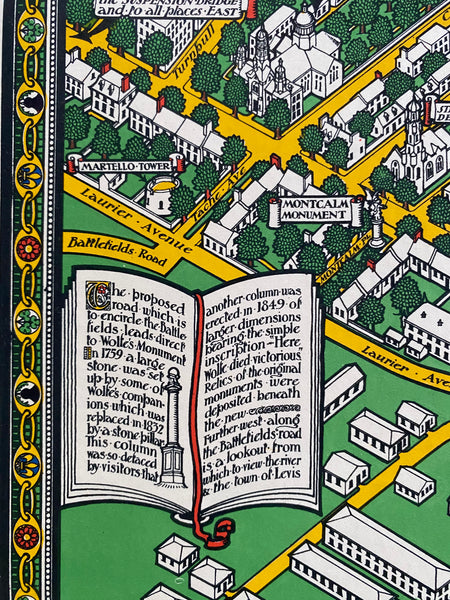 THE SUSPENSION BRIDGE
and to all places EAST
Turnbull
MARTELLO-TOWER
Taché Ave
MONTCALM
MONUMENT
Laurier · Avenue
MONTCALM
Battlefields · Road
Laurier · Ave
The proposed
road which is
to encircle the Battle-
fields, leads direct
to Wolfe's Monument
In 1759 a large
stone was set
up by some of
Wolfe's compan-
ions which was
replaced in 1832
by a stone pillar
This column
was so defaced
by visitors that
another column was
erected in 1849 of
larger dimensions
bearing the simple
inscription "Here
Wolfe died victorious,"
Relics of the original
monuments were
deposited beneath
the new
Further west along
the Battlefields-road
is a lookout from
which to view the river
& the town of Levis